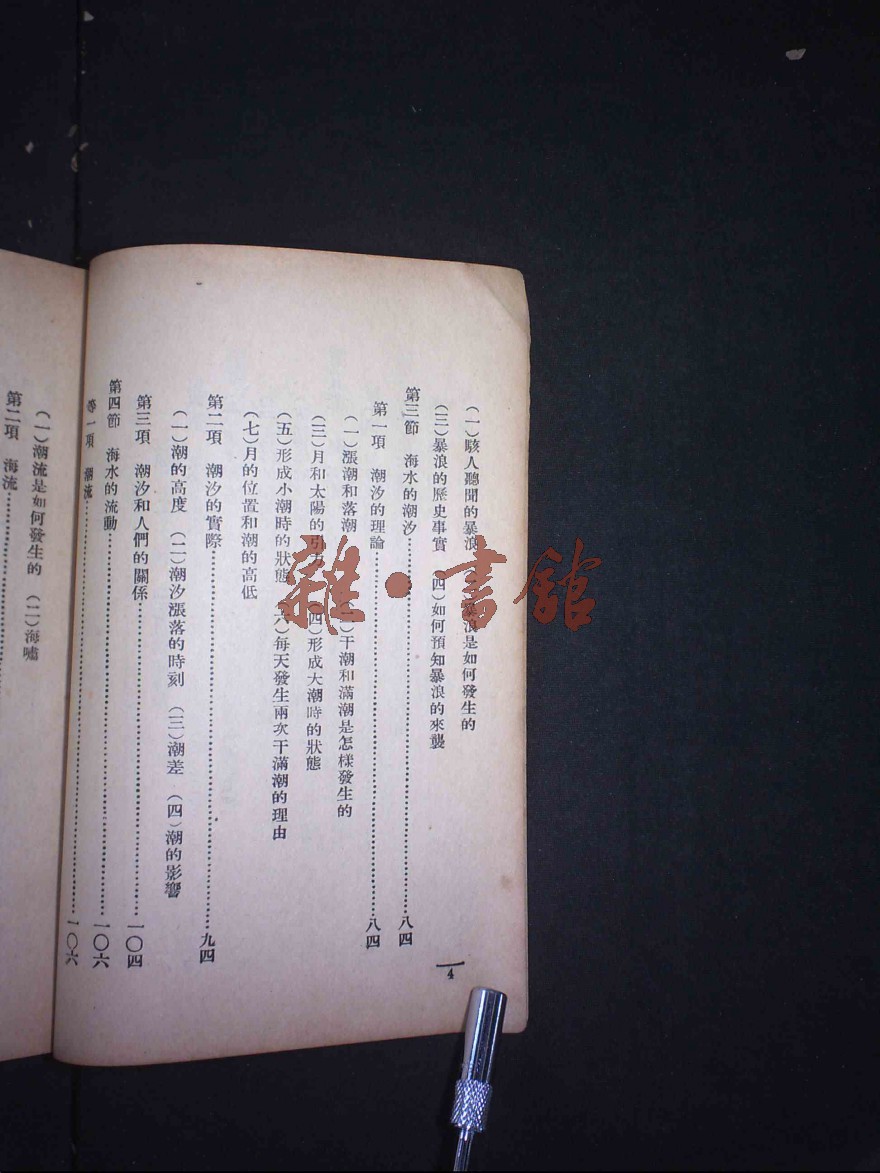 (一)駭人聽聞的暴浪 暴浪是如何發生的
(三)暴浪的歷史事實 (四)如何預知暴浪的來襲
第三節 海水的潮汐……八四
第一項 潮汐的理論……八四
(一)漲潮和落潮 (二)干潮和滿潮是怎樣發生的
(三)月和太陽的引力 (四)形成大潮時的狀態
(五)形成小潮時的狀態 (六)每天發生兩次干滿潮的理由
(七)月的位置和潮的高低
第二項 潮汐的實際……九四
(一)潮的高度 (二)潮汐漲落的時刻 (三)潮差 (四)潮的影響
第三項 潮汐和人們的關係……一〇四
第四節 海水的流動……一〇六
第一項 潮流……一〇六
4
(一)潮流是如何發生的 (二)海嘯
第二項 海流……
雜·書館